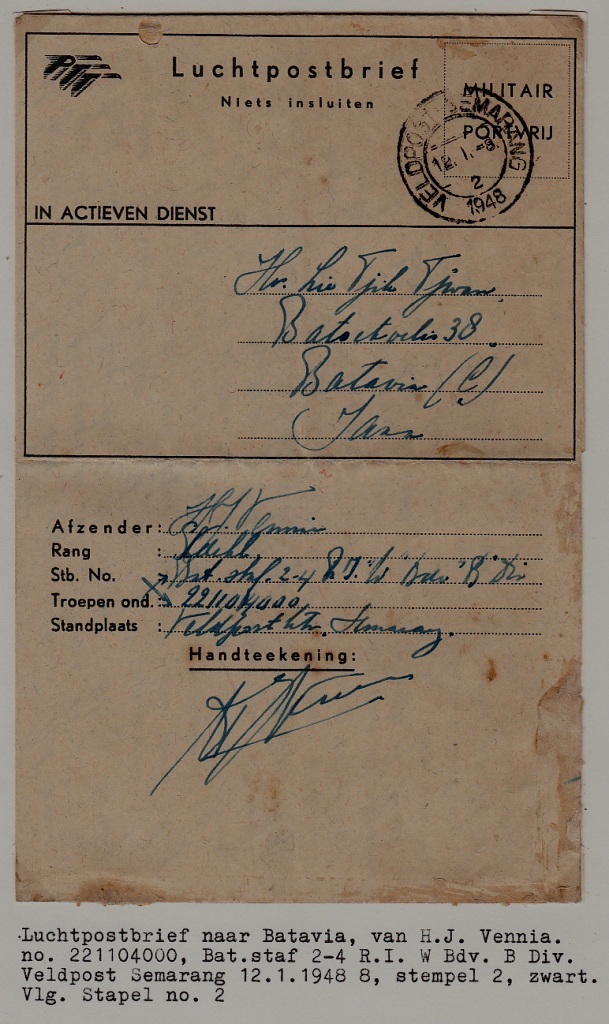 PTT
Luchtpostbrief
Niets insluiten
MILITAIR
PORTVRIJ
VELDPOST SEMARANG
12.1.-8
2
1948
IN ACTIEVEN DIENST
Hr. Lie Tjik Tjwan
38
Batavia (C)
Java
Afzender: H.J. Vennia
Rang :
Stb. No. : Bat. staf. 2-4 R.I. "W" Bdv "B" Div
Troepen ond. : 221104000
Standplaats : Veldpostktr. Semarang.
Handteekening:
Luchtpostbrief naar Batavia, van H.J. Vennia.
no. 221104000, Bat.staf 2-4 R.I. W Bdv. B Div.
Veldpost Semarang 12.1.1948 8, stempel 2, zwart.
Vlg. Stapel no. 2